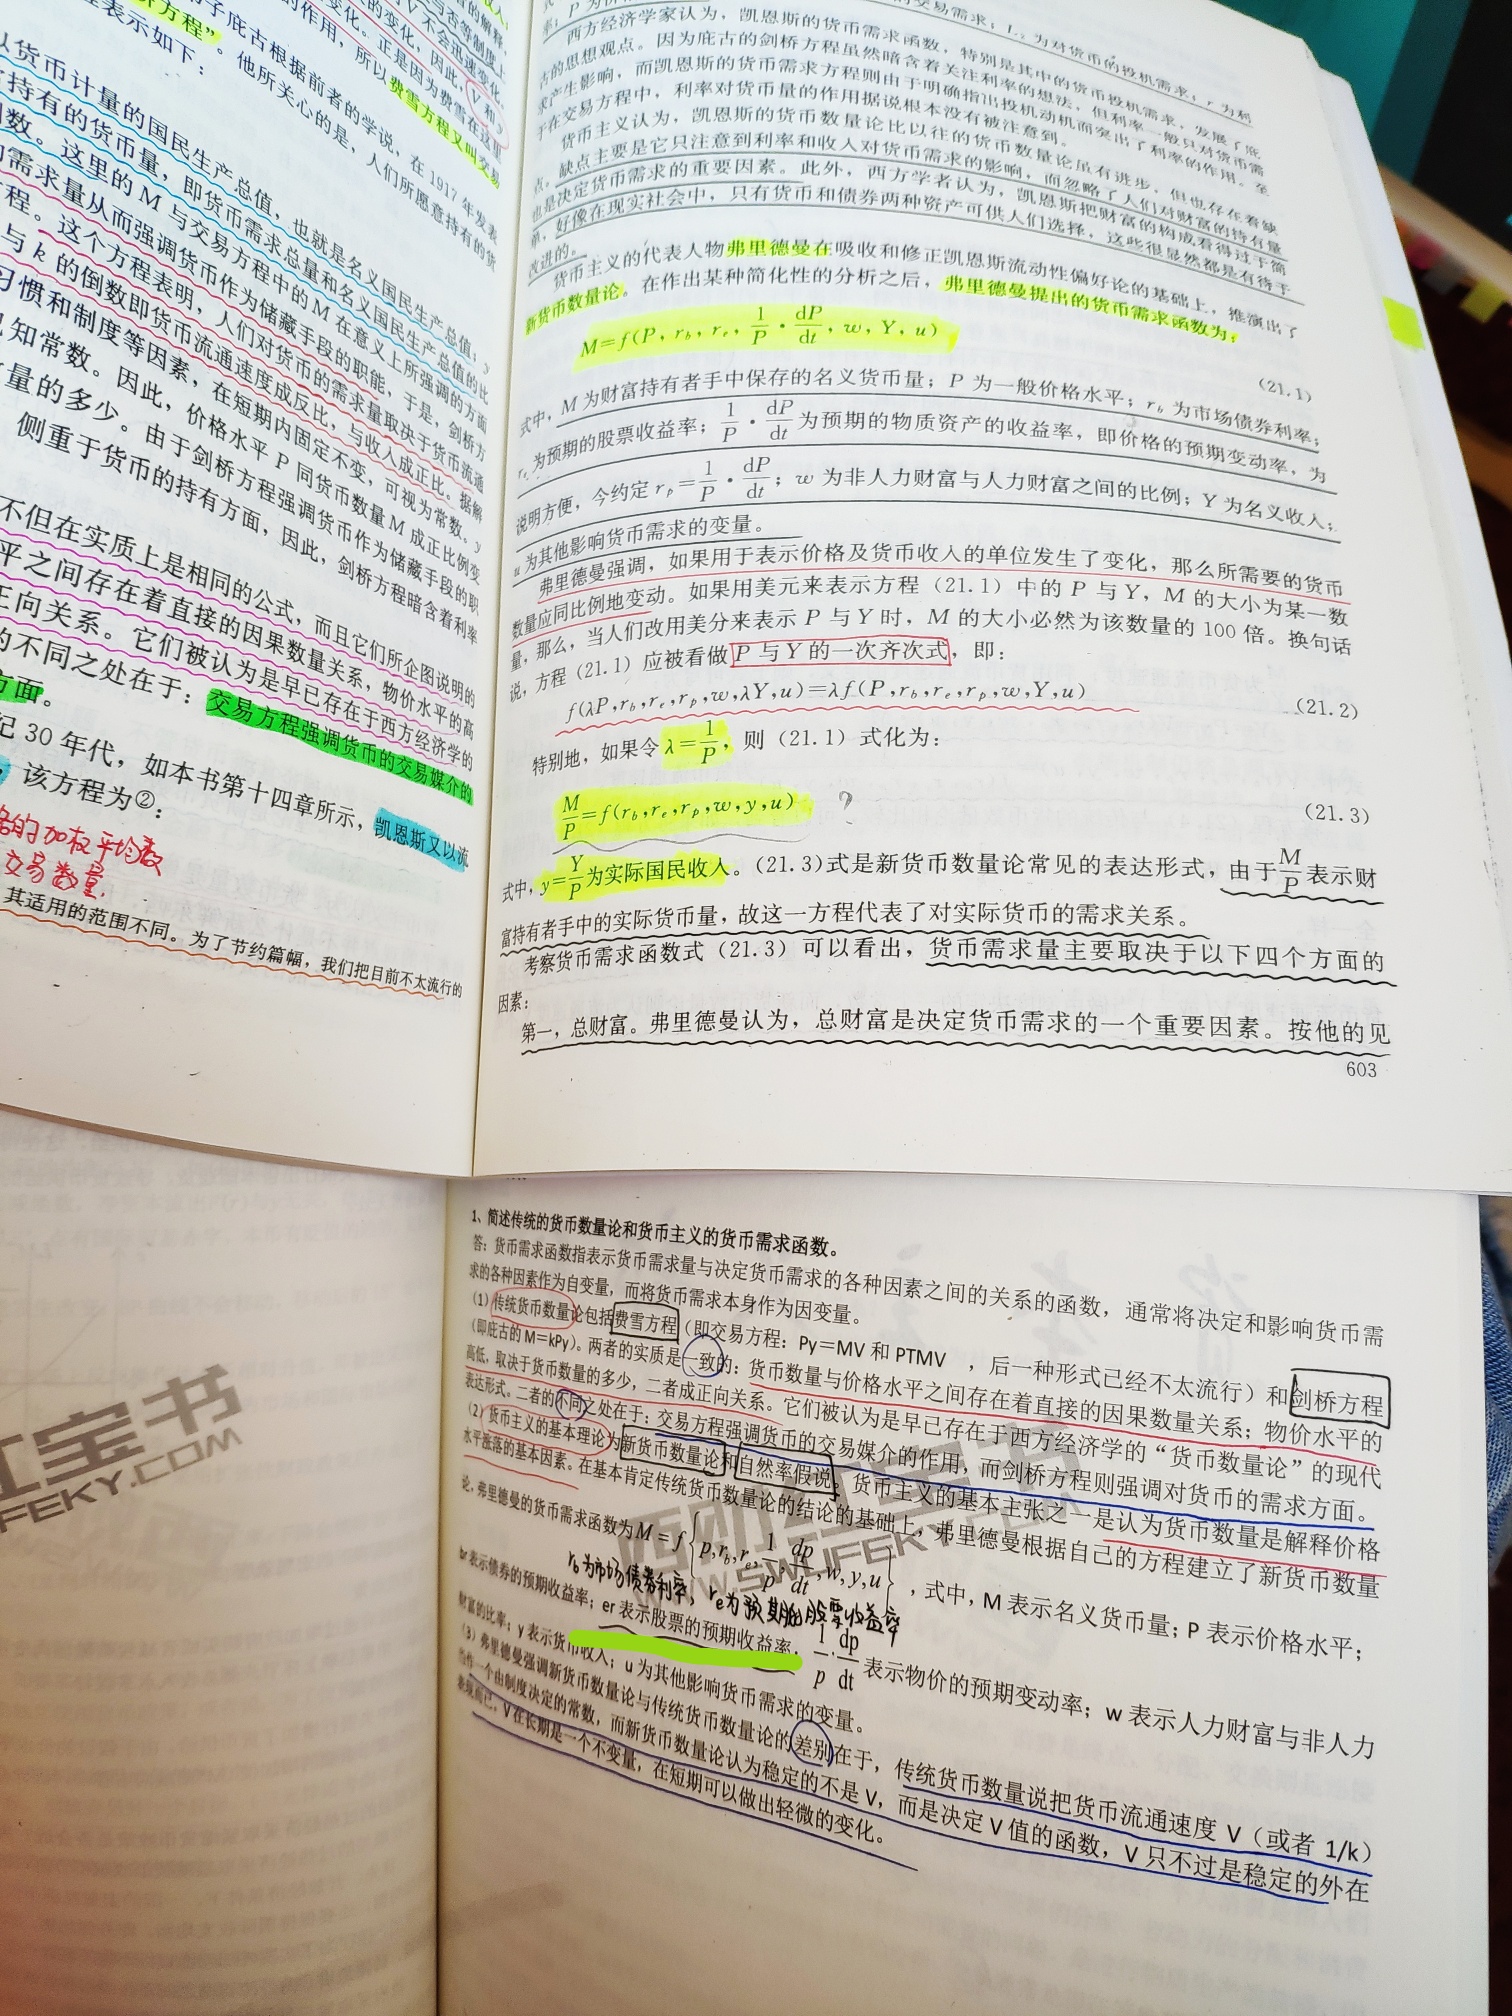 方程”。他所关心的是，人们所愿意持有的货
表示如下：
以货币计量的国民生产总值，也就是名义国民生产总值；y
持有的货币量，即货币需求总量和名义国民生产总值的比
数。这里的 M 与交易方程中的 M 在意义上所强调的方面
需求量从而强调货币作为储藏手段的职能，于是，剑桥方
程。这个方程表明，人们对货币的需求量取决于货币流通
与 k 的倒数即货币流通速度成反比，与收入成正比。据解
习惯和制度等因素，在短期内固定不变，可视为常数。y
知常数。因此，价格水平 P 同货币数量 M 成正比例变
量的多少。由于剑桥方程强调货币作为储藏手段的职
侧重于货币的持有方面，因此，剑桥方程暗含着利率
不但在实质上是相同的公式，而且它们所企图说明的
平之间存在着直接的因果数量关系，物价水平的高
正向关系。它们被认为是早已存在于西方经济学的
的不同之处在于：交易方程强调货币的交易媒介的
方面。
纪 30 年代，如本书第十四章所示，凯恩斯又以流
，该方程为②：
的加权平均数
交易数量.
其适用的范围不同。为了节约篇幅，我们把目前不太流行的
西方经济学家认为，凯恩斯的货币需求函数，特别是其中的货币投机需求，发展了庇
古的思想观点。因为庇古的剑桥方程虽然暗含着关注利率的想法，但利率一般只对货币需
求产生影响，而凯恩斯的货币需求方程则由于明确指出投机动机而突出了利率的作用。至
于在交易方程中，利率对货币量的作用据说根本没有被注意到。
货币主义认为，凯恩斯的货币数量论比以往的货币数量论虽有进步，但也存在着缺
点，缺点主要是它只注意到利率和收入对货币需求的影响，而忽略了人们对财富的持有量
也是决定货币需求的重要因素。此外，西方学者认为，凯恩斯把财富的构成看得过于简
单，好像在现实社会中，只有货币和债券两种资产可供人们选择，这些很显然都是有待于
改进的。
货币主义的代表人物弗里德曼在吸收和修正凯恩斯流动性偏好论的基础上，推演出了
新货币数量论。在作出某种简化性的分析之后，弗里德曼提出的货币需求函数为：
M=f(P, r_b, r_e, 1/P · dP/dt, w, Y, u) (21.1)
式中，M 为财富持有者手中保存的名义货币量；P 为一般价格水平；r_b 为市场债券利率；
r_e 为预期的股票收益率；1/P · dP/dt 为预期的物质资产的收益率，即价格的预期变动率，为
说明方便，今约定 r_p=1/P · dP/dt；w 为非人力财富与人力财富之间的比例；Y 为名义收入；
u 为其他影响货币需求的变量。
弗里德曼强调，如果用于表示价格及货币收入的单位发生了变化，那么所需要的货币
数量应同比例地变动。如果用美元来表示方程（21.1）中的 P 与 Y，M 的大小为某一数
量，那么，当人们改用美分来表示 P 与 Y 时，M 的大小必然为该数量的 100 倍。换句话
说，方程（21.1）应被看做 P 与 Y 的一次齐次式，即：
f(λP,r_b,r_e,r_p,w,λY,u)=λf(P,r_b,r_e,r_p,w,Y,u) (21.2)
特别地，如果令 λ=1/P，则（21.1）式化为：
M/P=f(r_b,r_e,r_p,w,y,u) ? (21.3)
式中，y=Y/P 为实际国民收入。（21.3)式是新货币数量论常见的表达形式，由于 M/P 表示财
富持有者手中的实际货币量，故这一方程代表了对实际货币的需求关系。
考察货币需求函数式（21.3）可以看出，货币需求量主要取决于以下四个方面的
因素：
第一，总财富。弗里德曼认为，总财富是决定货币需求的一个重要因素。按他的见
603
1、简述传统的货币数量论和货币主义的货币需求函数。
答：货币需求函数指表示货币需求量与决定货币需求的各种因素之间的关系的函数，通常将决定和影响货币需
求的各种因素作为自变量，而将货币需求本身作为因变量。
（1）传统货币数量论包括费雪方程（即交易方程：Py=MV 和 PTMV ，后一种形式已经不太流行）和剑桥方程
（即庇古的 M=kPy）。两者的实质是一致的：货币数量与价格水平之间存在着直接的因果数量关系；物价水平的
高低，取决于货币数量的多少，二者成正向关系。它们被认为是早已存在于西方经济学的“货币数量论”的现代
表达形式。二者的不同之处在于：交易方程强调货币的交易媒介的作用，而剑桥方程则强调对货币的需求方面。
（2）货币主义的基本理论为新货币数量论和自然率假说。货币主义的基本主张之一是认为货币数量是解释价格
水平涨落的基本因素。在基本肯定传统货币数量论的结论的基础上，弗里德曼根据自己的方程建立了新货币数量
论，弗里德曼的货币需求函数为 M = f{p,r_b,r_e,1/p dp/dt,w,y,u}，式中，M 表示名义货币量；P 表示价格水平；
r_b为市场债券利率，r_e为预期的股票收益率
br 表示债券的预期收益率；er 表示股票的预期收益率，1/p·dp/dt 表示物价的预期变动率；w 表示人力财富与非人力
财富的比率；y 表示货币收入；u 为其他影响货币需求的变量。
（3）弗里德曼强调新货币数量论与传统货币数量论的差别在于，传统货币数量说把货币流通速度 V（或者 1/k）
当作一个由制度决定的常数，而新货币数量论认为稳定的不是 V，而是决定 V 值的函数，V 只不过是稳定的外在
表现而已，V 在长期是一个不变量，在短期可以做出轻微的变化。
红宝书
IFEKY.COM
WWW.SWLIFEKY.COM